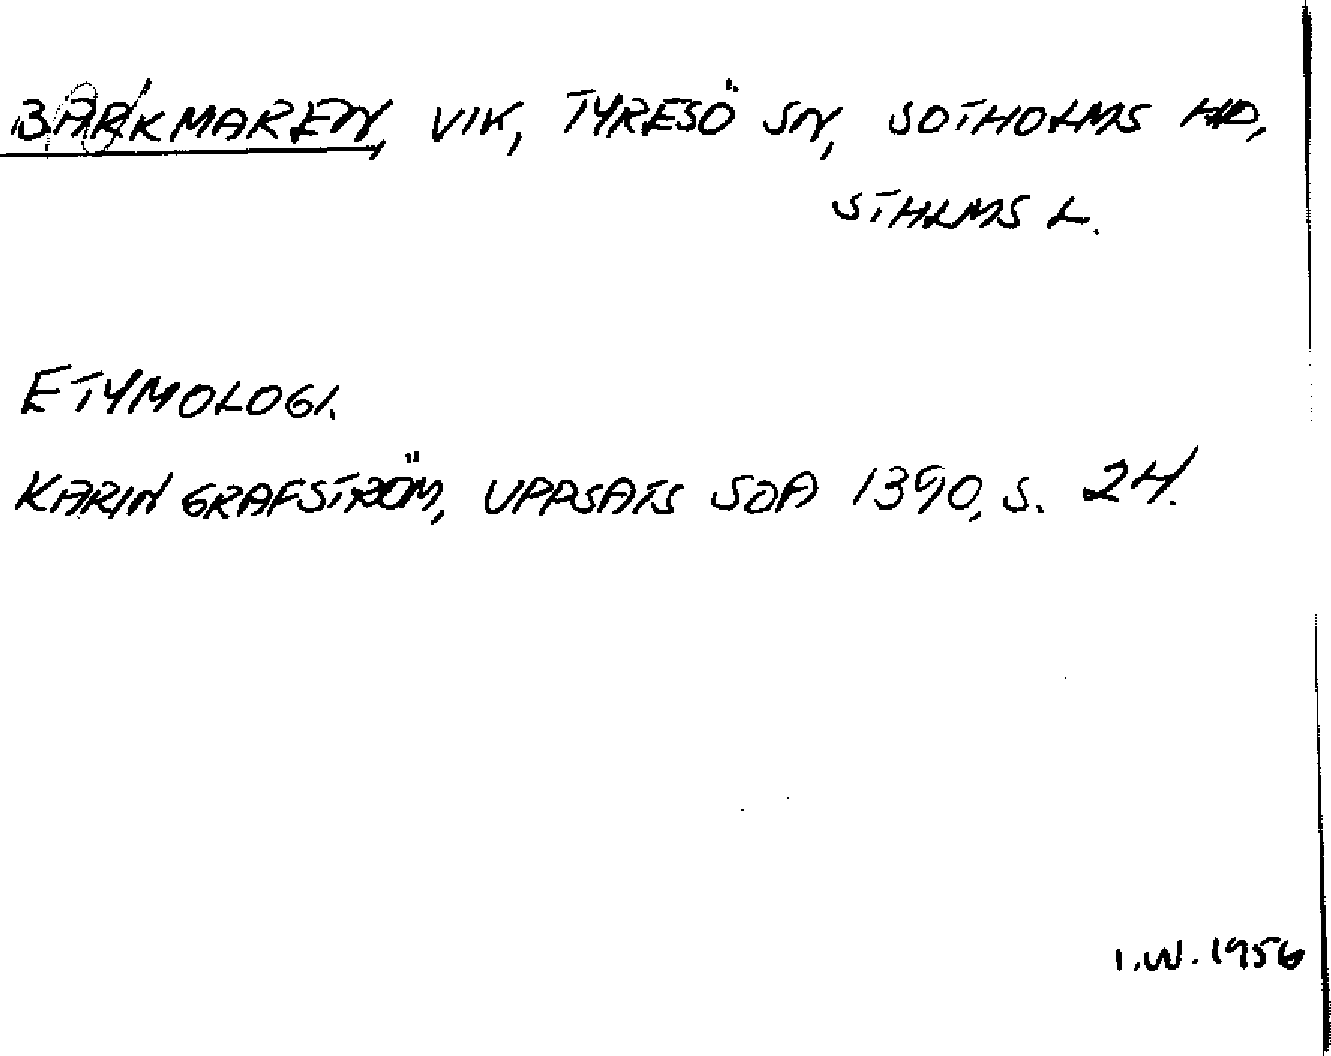 BARKMAREN, VIK, TYRESÖ SN, SOTHOLMS HD,
STHLMS L.
ETYMOLOGI.
KARIN GRAFSTRÖM, UPPSATS SOA 1390, S. 24.
I.W. 1956